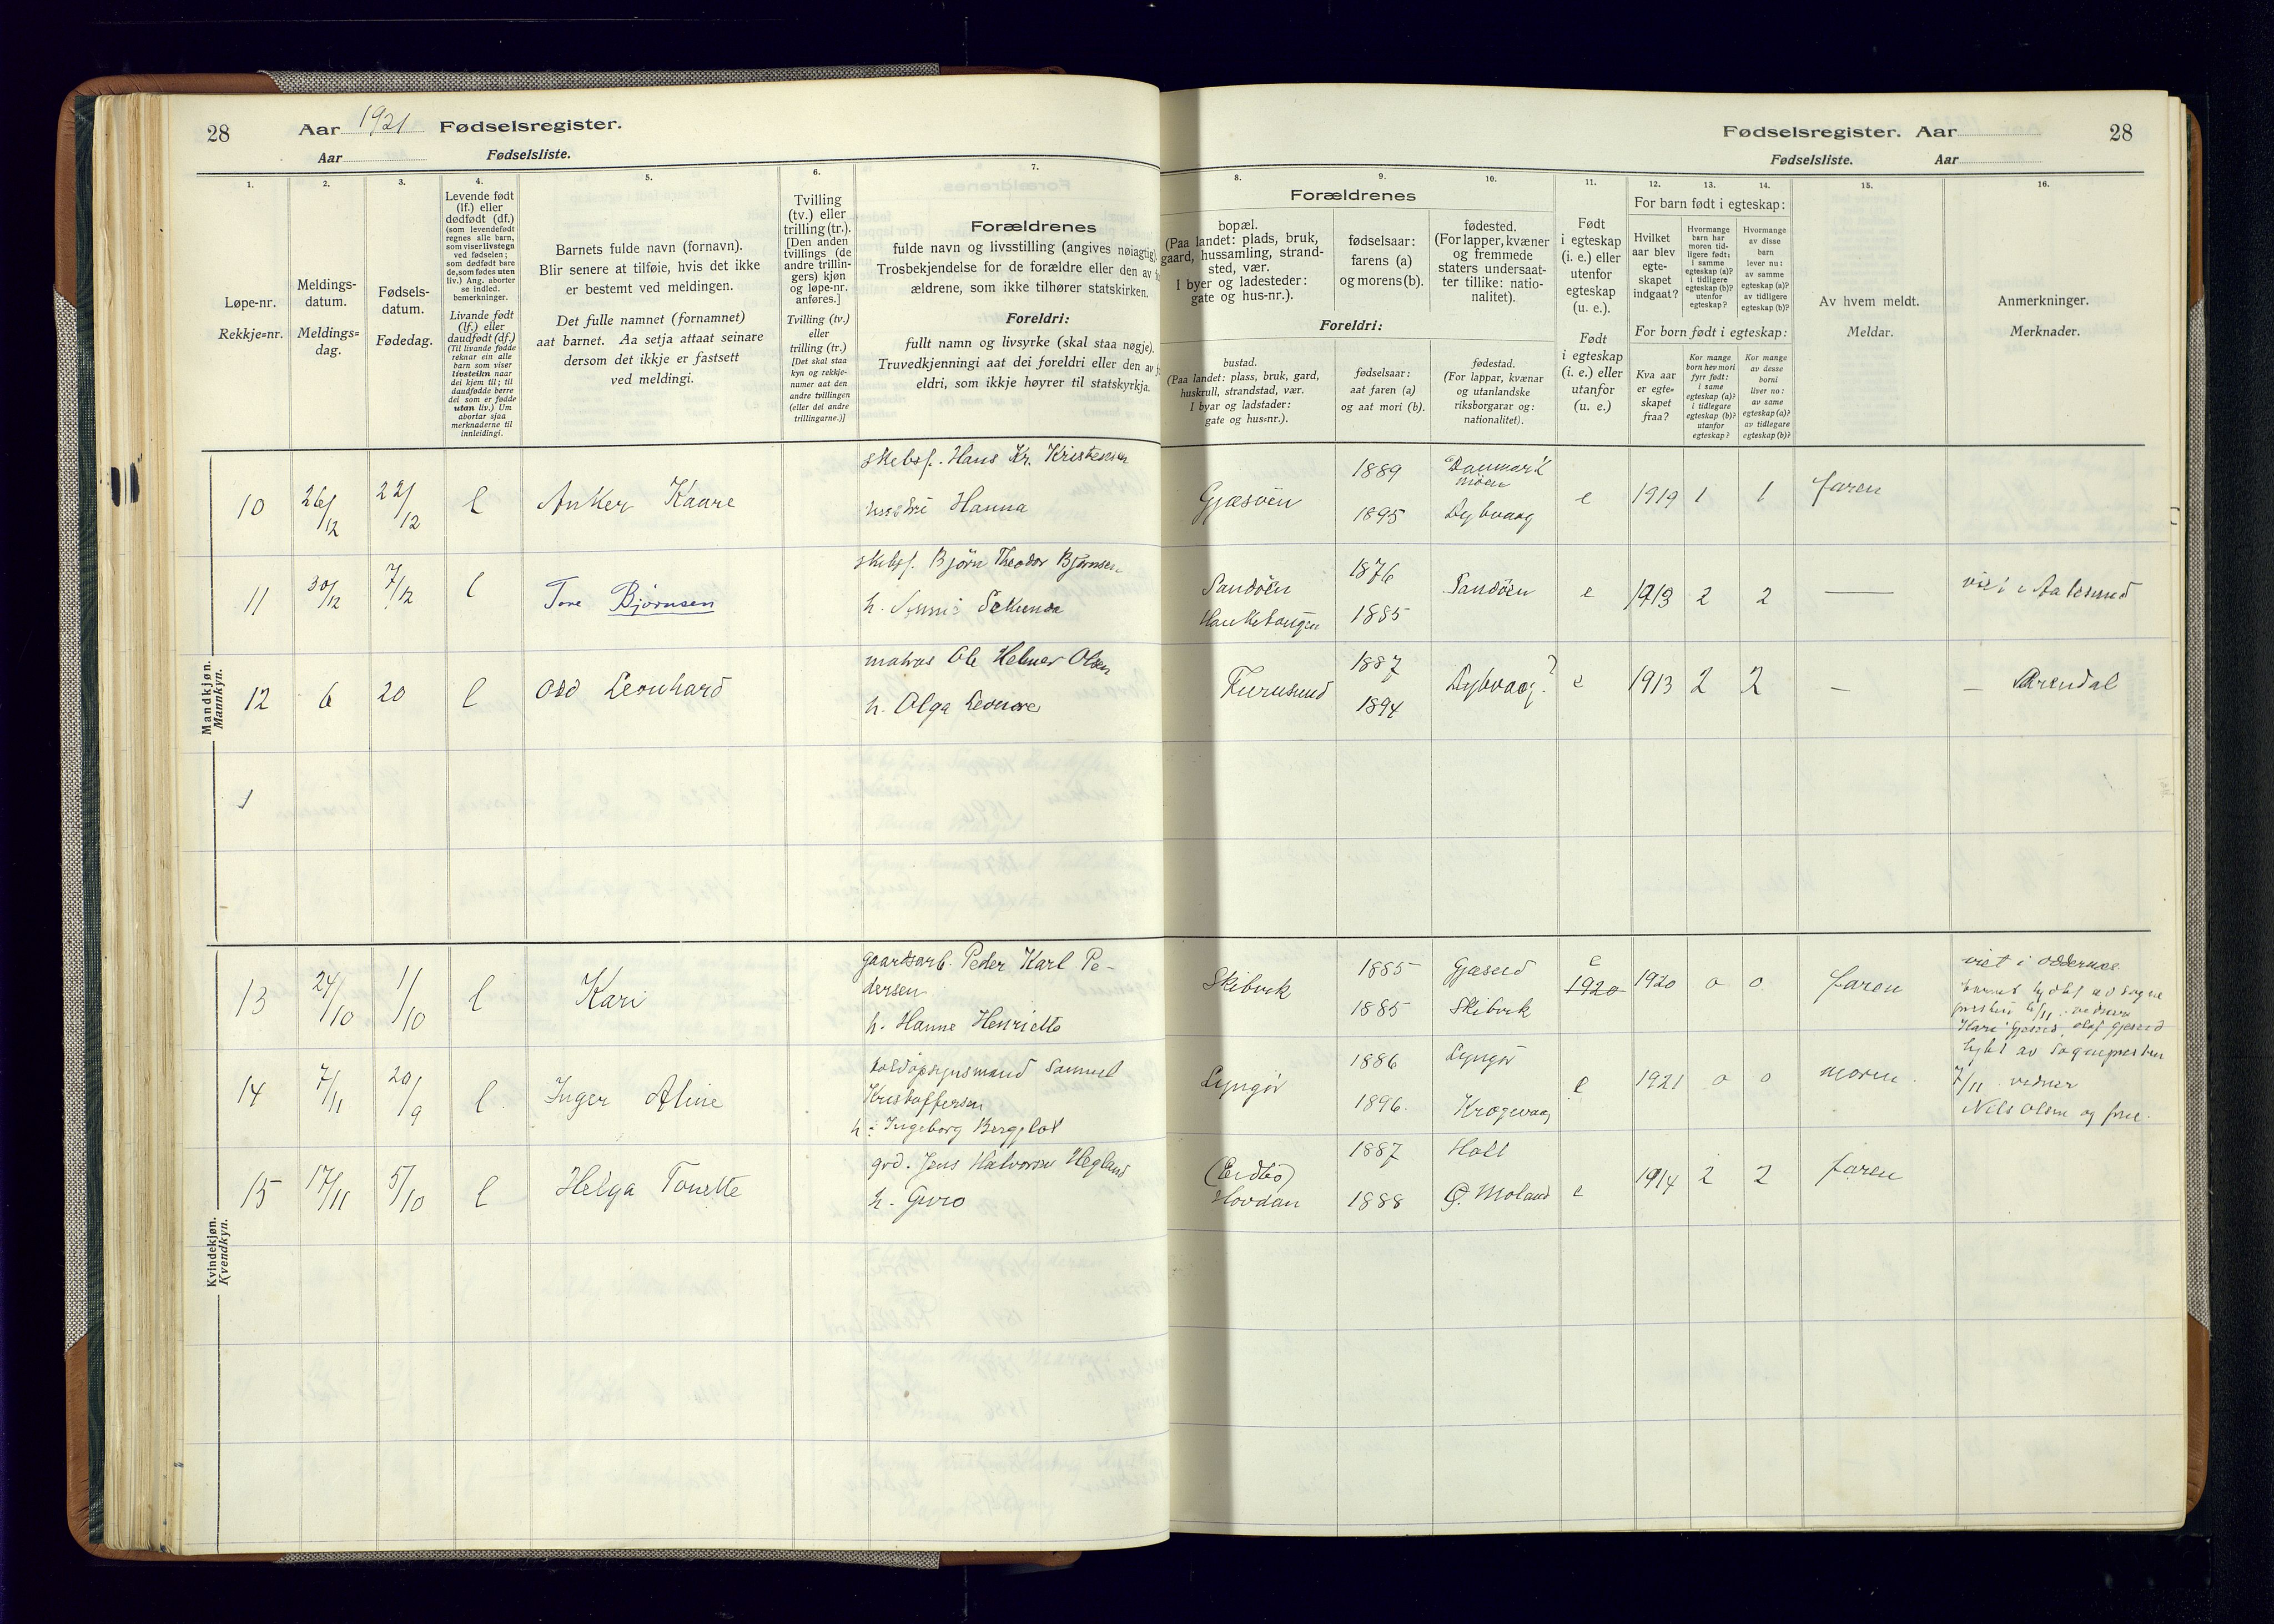 28
Aar 1921 Fødselsregister.
Aar Fødselsliste.
1.
2.
3.
4.
5.
6.
7.
Løpe-nr.
Rekkje=nr.
Meldings-
datum.
Meldings=
dag.
Fødsels-
datum.
Fødedag.
Levende født
(lf.) eller
dødfødt (df.)
(som levendefødt
regnes alle barn,
som viser livstegn
ved fødselen;
som dødfødt bare
de, som fødes uten
liv.) Ang. aborter
se indled.
bemerkninger.
Livande født
(lf.) eller
daudfødt (df.)
(Til livande fødde
reknar ein alle
barn som viser
livsteikn naar
dei kjem til; til
daudfødde berre
dei som er fødde
utan liv.) Um
abortar sjaa
merknaderne til
innleidingi.
Barnets fulde navn (fornavn).
Blir senere at tilføie, hvis det ikke
er bestemt ved meldingen.
Det fulle namnet (fornamnet)
aat barnet. Aa setja attaat seinare
dersom det ikkje er fastsett
ved meldingi.
Tvilling
(tv.) eller
trilling (tr.).
[Den anden
tvillings (de
andre trillin-
gers) kjøn
og løpe-nr.
anføres.]
Tvilling (tv.)
eller
trilling (tr.)
[Det skal staa
kyn og rekkje-
numer aat den
andre tvillingen
(eller dei andre
trillingarne.)]
Forældrenes
fulde navn og livsstilling (angives nøiagtig).
Trosbekjendelse for de forældre eller den av
ældrene, som ikke tilhører statskirken.
Foreldri:
fullt namn og livsyrke (skal staa nøgje).
Truvedkjenningi aat dei foreldri eller den av
eldri, som ikkje høyrer til statskyrkja.
Mandkjøn.
Mannkyn.
10 26/12 22/12 l Anker Kaare
skibsf. Hans Kr. Kristensen
hustru Hanna
11 30/12 7/12 l Tore Bjørnsen
skibsf. Bjørn Theodor Bjørnsen
h.
12 6 20 l Odd Leonhard
matros Ole Helmer Olsen
h. Olga Leonore
Kvindekjøn.
Kvendkyn.
13 24/10 1/10 l Kari
gaardsarb. Peder Karl Pe-
dersen
h. Hanne Henriette
14 7/11 20/9 l Inger Aline
toldopsynsmand Samuel
Kristoffersen
h. Ingeborg Bergplot
15 17/11 5/10 l Helga Tonette
grd. Jens Halvorsen Hegland
h. Guro
Fødselsregister. Aar
28
Fødselsliste. Aar
8.
9.
10.
11.
12.
13.
14.
15.
16.
Forældrenes
bopæl.
(Paa landet: plads, bruk,
gaard, hussamling, strand-
sted, vær.
I byer og ladesteder:
gate og hus-nr.).
fødselsaar:
farens (a)
og morens (b).
fødested.
(For lapper, kvæner
og fremmede
staters undersaat-
ter tillike: natio-
nalitet).
Foreldri:
bustad.
(Paa landet: plass, bruk, gard,
huskrull, strandstad, vær.
I byar og ladstader:
gate og hus=nr.).
fødselsaar:
aat faren (a)
og aat mori (b).
fødestad.
(For lappar, kvænar
og utanlandske
riksborgarar og:
nationalitet).
Født
i egteskap
(i. e.) eller
utenfor
egteskap
(u. e.).
Født
i egteskap
(i. e.) eller
utanfor
(u. e.)
For barn født i egteskap:
Hvilket
aar blev
egte-
skapet
indgaat?
Hvormange
barn har
moren tid-
ligere født:
i samme
egteskap (a)?
i tidligere
egteskap (b)?
utenfor
egteskap?
Hvormange
av disse
barn
lever nu:
av samme
egteskap (a)?
av tidligere
egteskap (b)?
For born født i egteskap:
Kva aar
er egte=
skapet
fraa?
Kor mange
born hev mori
fyrr født:
i same
egteskap (a)?
i tidlegare
egteskap (b)?
utanfor
egteskap?
Kor mange
av desse
borni
liver no:
av same
egteskap (a)?
av tidlegare
egteskap (b)?
Av hvem meldt.
Meldar.
Anmerkninger.
Merknader.
Gjæsøen
1889 Danmark
1895 Dybvaag
e 1919 1 1 faren
Sandøen
1876 Sandøen
1885
e 1913 2 2 —
Aalesund
Furusund
1887 Dybvaag ?
1894
e 1913 2 2 — — Arendal
Skibvik
1885 Gjæserd
1885 Skibvik
e
1920
1920 0 0 faren
viet i Oddernes
Lyngør
1886 Lyngør
1896. Krogevaag
e 1921 0 0 moren
av Sognepresten
7/11 vidner
Nils Olsen og frue.
(Eidbo)
Hovdan
1887 Holt
1888 Ø. Moland
e 1914 2 2 faren